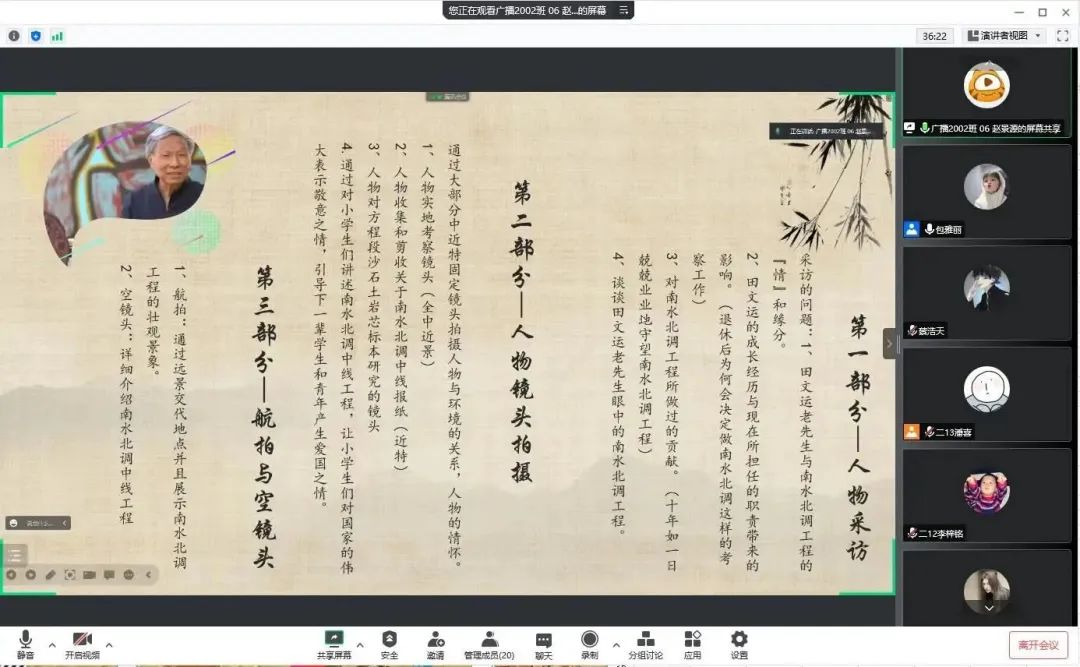 您正在观看广播2002班 06 赵...的屏幕
36:22
演讲者视图
正在讲话: 广播2002班 06 赵景...
第一部分—人物采访
采访的问题：1、田文运老先生与南水北调工程的
『情』和缘分。
2、田文运的成长经历与现在所担任的职责带来的
影响。（退休后为何会决定做南水北调这样的考
察工作）
3、对南水北调工程所做过的贡献。（十年如一日
兢兢业业地守望南水北调工程）
4、谈谈田文运老先生眼中的南水北调工程。
第二部分—人物镜头拍摄
通过大部分中近特固定镜头拍摄人物与环境的关系，人物的情怀。
1、人物实地考察镜头（全中近景）
2、人物收集和剪收关于南水北调中线报纸（近特）
3、人物对方程段沙石土岩芯标本研究的镜头
4.通过对小学生们讲述南水北调中线工程，让小学生们对国家的伟
大表示敬意之情，引导下一辈学生和青年产生爱国之情。
第三部分—航拍与空镜头
1、航拍：通过远景交代地点并且展示南水北调
工程的壮观景象。
2、空镜头：详细介绍南水北调中线工程
广播2002班 06 赵景源的屏幕共享
包雅丽
蔡浩天
二13潘喜
二12李梓铭
静音
开启视频
共享屏幕
安全
邀请
管理成员(20)
聊天
录制
分组讨论
应用
设置
离开会议